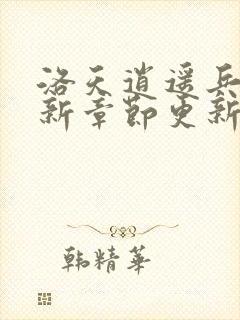 洛天逍遥兵
新章节更新
韩精华